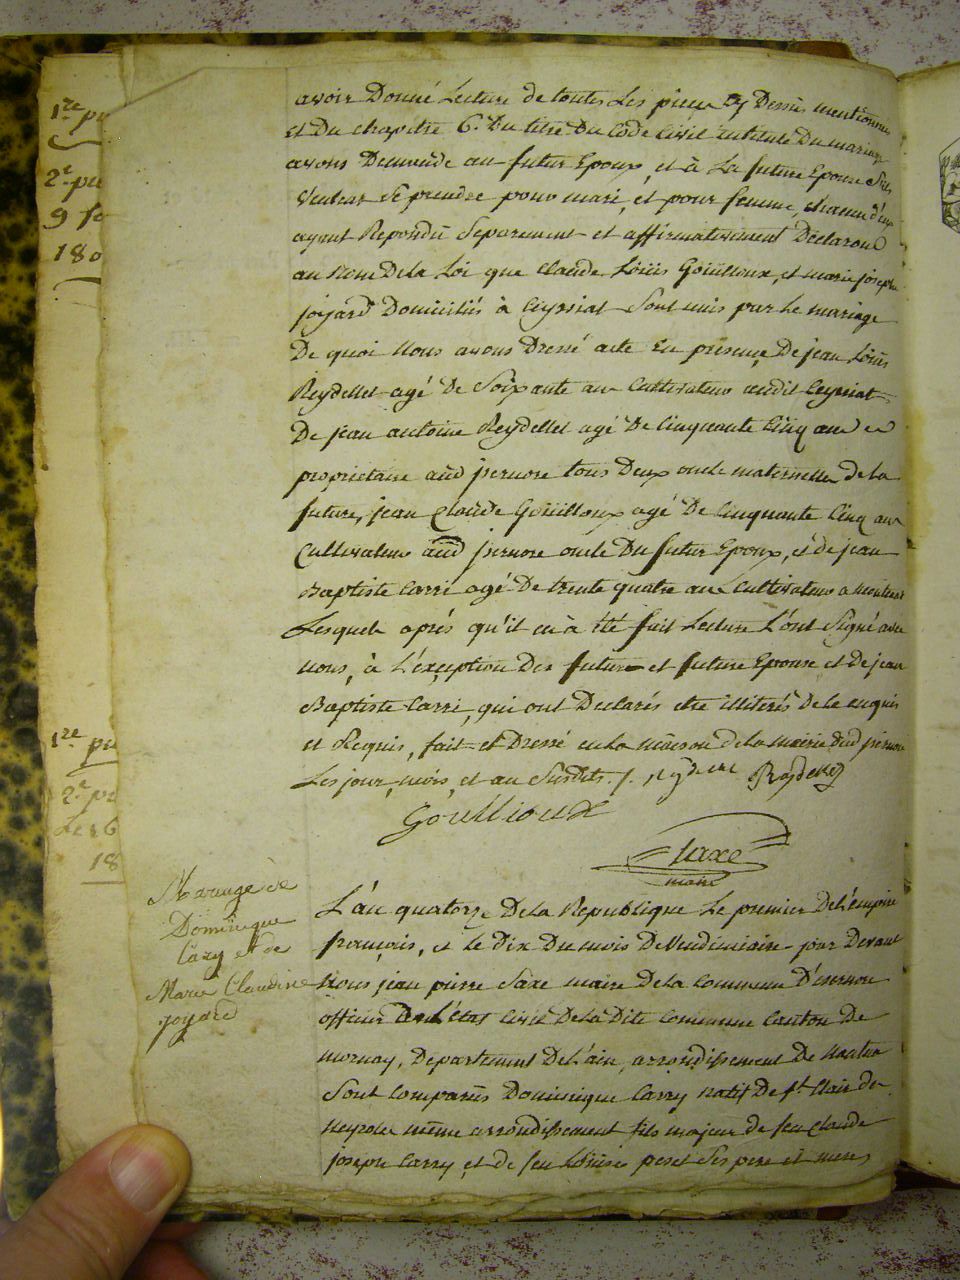 1re pi
2e pie
9 fe
180
avoir Donné Lecture de toutes Les pieces Cy Dessus mentionnées
et Du chapitre 6. Du titre Du Code Civil intitulé Du mariage
avons Demandé au futur Epoux, et à La future Epouse S'ils
Veulent Se prendre pour mari, et pour femme, chacun d'eux
ayant Repondu Separement et affirmativement Declarons
au Nom De la Loi que claude Louis Goüilloux, et marie josephe
joyard Domiciliés à Ceyssiat Sont unis par Le mariage
De quoi Nous avons Dressé acte En presence De jean Loüis
Reydellet agé De Soixante ans Cultivateur audit Ceyssiat
De jean antoine Reydellet agé De Cinquante Cinq ans
proprietaire aud jzernore tous Deux oncle maternelle De La
future, jean Claude Goüilloux agé De Cinquante Cinq ans
Cultivateur aud jzernore oncle Du futur Epoux, et de jean
Baptiste Carri agé De trente quatre ans Cultivateur a
Lesquels après qu'il en à été fait Lecture L'ont Signé avec
nous, à L'exception Des future et future Epouse et De jean
Baptiste Carri, qui ont Declarés etre illiterés De le enquis
et Requis, fait et Dressé en La Maison de la Mairie dud jzernore
Les jour, mois, et an Susdits. Reydellet
Goullioux
Saxe
maire
1re pi
2e pi
Le 16
18
Mariage de
Dominique
Carry et de
Marie Claudine
joyard
L'an quatorze De la Republique Le premier De L'empire
françois, et le Dix Du mois De Vendimiaire par Devant
Nous jean pierre Saxe maire De la Commune D'isernore
officier De L'état Civil De la Dite Commune Canton De
mornay, Departement De L'ain, arrondissement De Nantua
Sont Comparus Dominique Carry natif De St. Clair du
Neyrole même arrondissement fils majeur de feu Claude
joseph Carry, et de feu Loüise peset Ses pere et mere